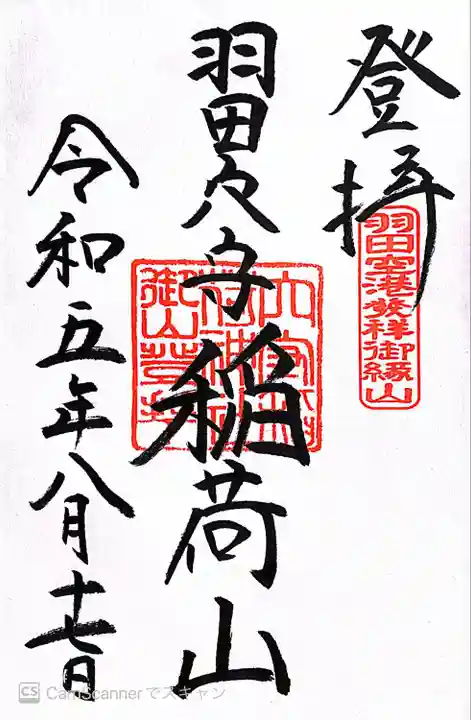 登拝
羽田空港発祥御縁山
羽田穴守稲荷山
令和五年八月十七日
CS CamScannerでスキャン